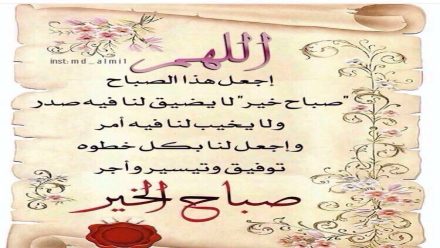 اللهم
inst: md _ almi1
إجعل هذا الصباح
"صباح خير" لا يضيق لنا فيه صدر
ولا يخيب لنا فيه أمر
وإجعل لنا بكل خطوه
توفيق وتيسير وأجر
صباح الخير